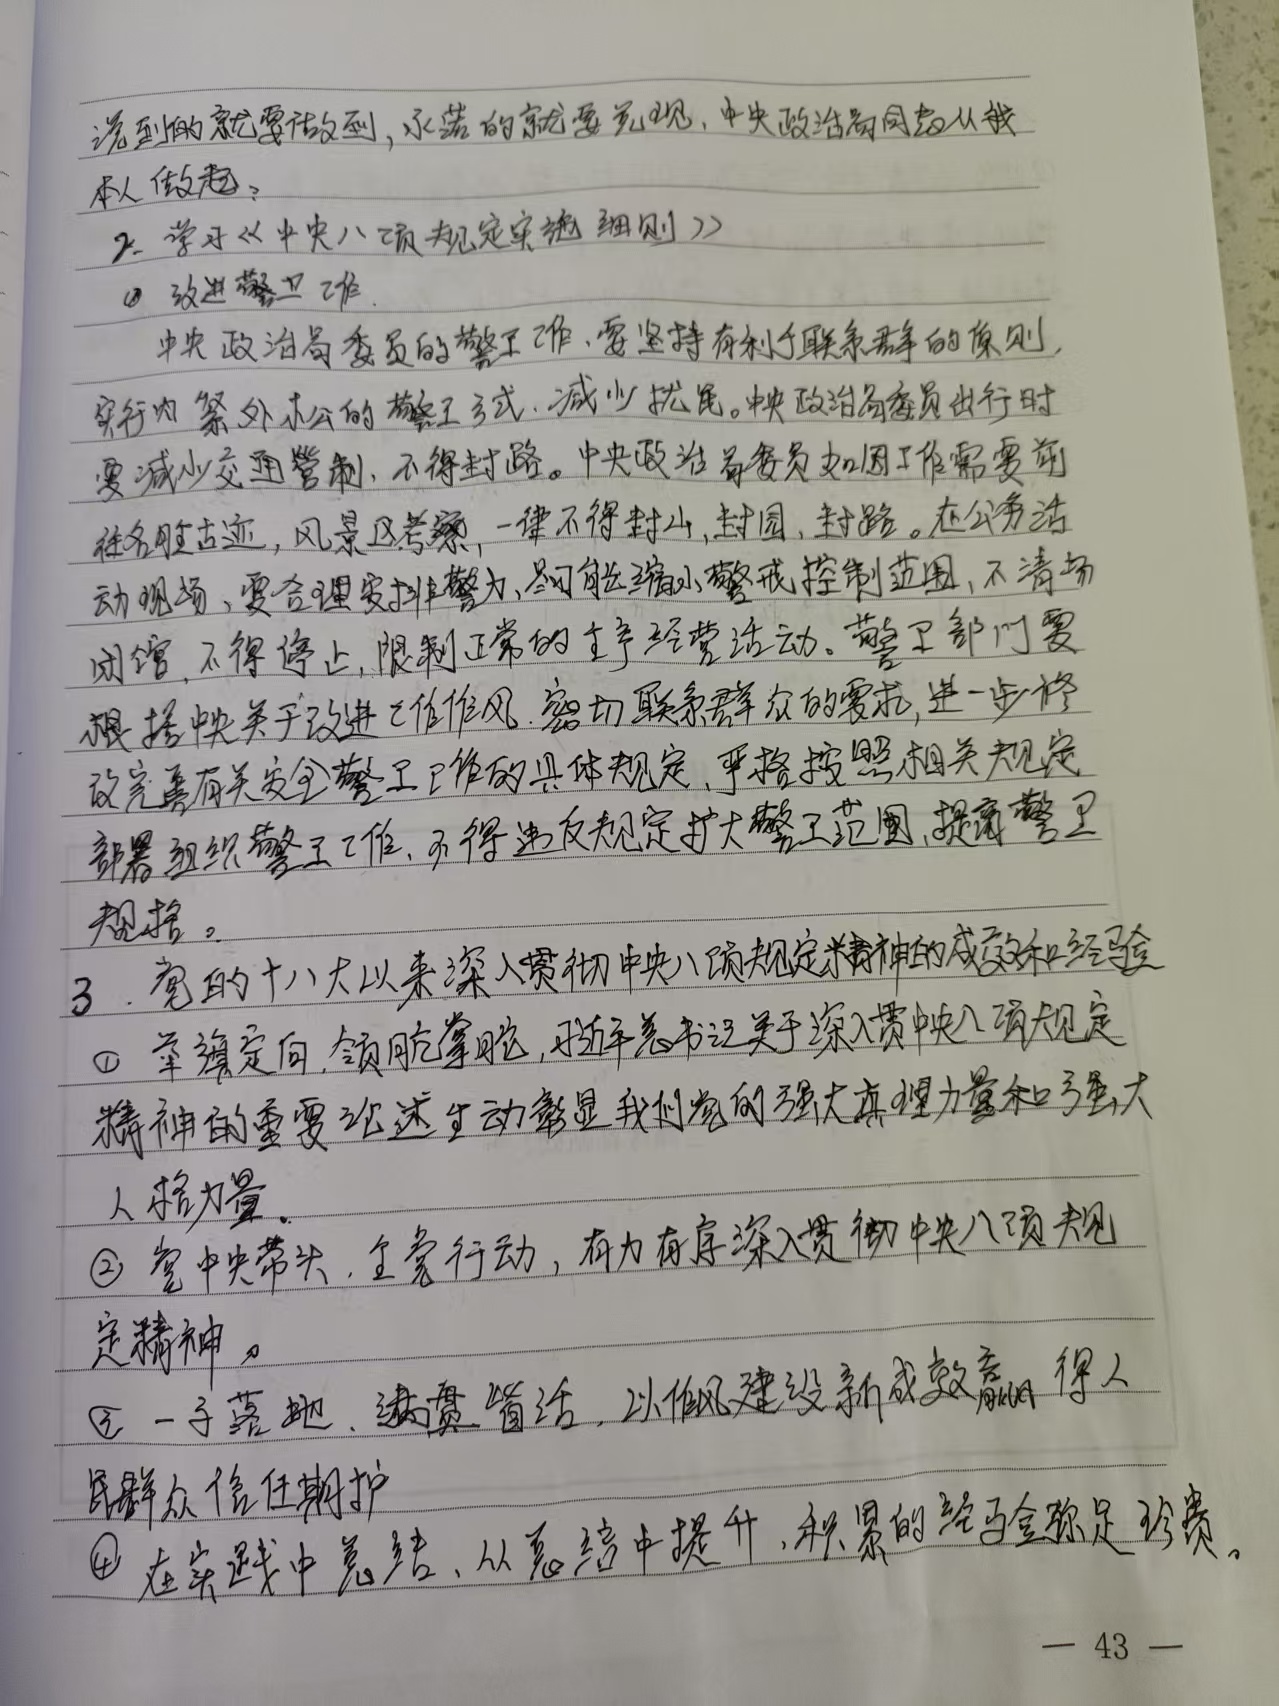 说到的就要做到,承诺的就要兑现、中央政治局同志从我
本人做起。
2. 学习《中央八项规定实施细则》
① 改进警卫工作.
中央政治局委员的警卫工作、要坚持有利于联系群众的原则,
实行内紧外松的警卫方式、减少扰民。中央政治局委员出行时
要减少交通管制、不得封路。中央政治局委员如因工作需要前
往名胜古迹,风景区考察,一律不得封山,封园、封路。在公务活
动现场、要合理安排警力、尽可能缩小警戒控制范围、不清场
闭馆,不得停止、限制正常的生产经营活动。警卫部门要
根据中央关于改进工作作风、密切联系群众的要求,进一步修
改完善有关安全警卫工作的具体规定、严格按照相关规定
部署组织警卫工作、不得违反规定扩大警卫范围、提高警卫
规格。
3. 党的十八大以来深入贯彻中央八项规定精神的成效和经验
① 举旗定向、领航掌舵,习近平总书记关于深入贯中央八项规定
精神的重要论述生动彰显我们党的强大真理力量和强大
人格力量。
② 党中央带头、全党行动,有力有序深入贯彻中央八项规
定精神。
③ 一子落地、满贯皆活,以作风建设新成效赢得人
民群众信任拥护
④ 在实践中总结、从总结中提升、积累的经验弥足珍贵。
— 43 —